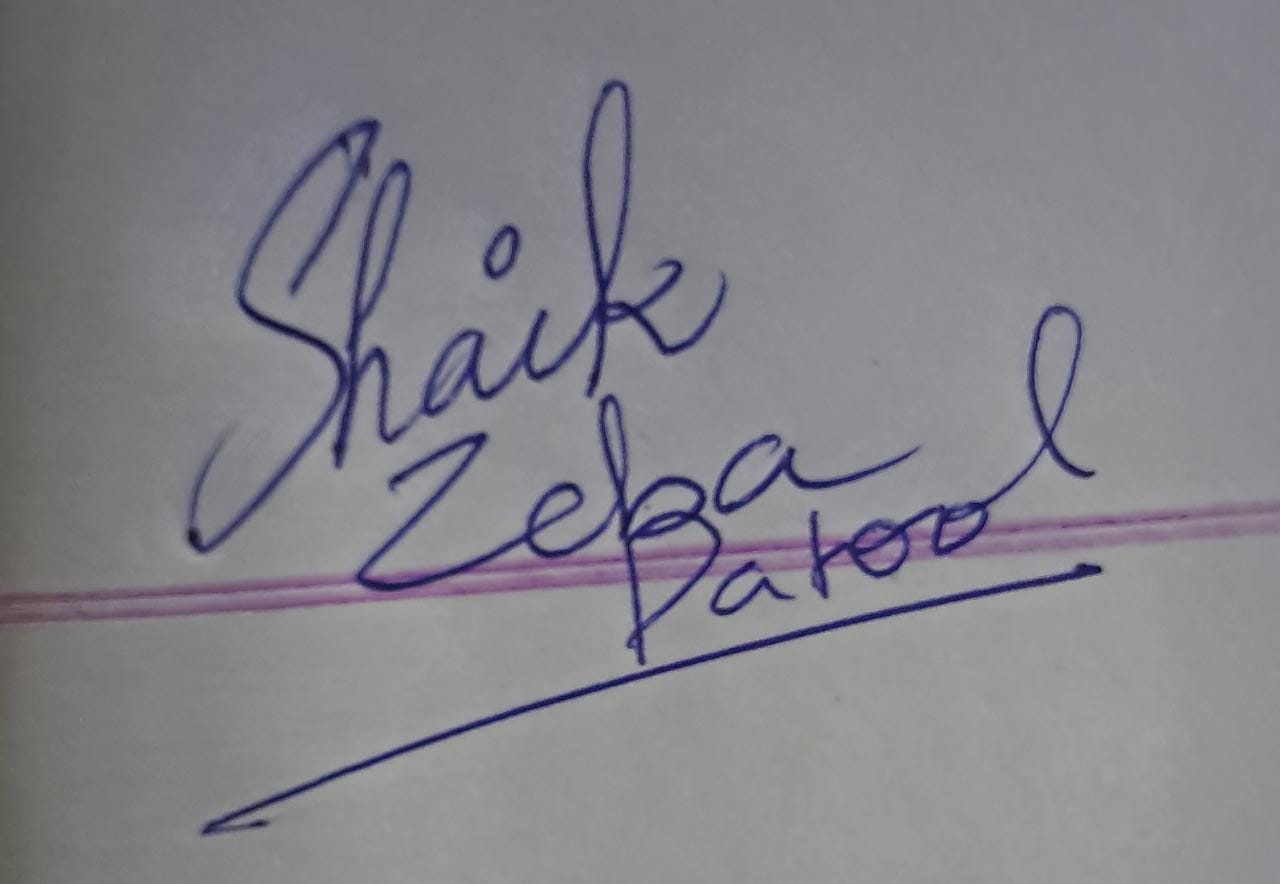 Shaik
Zeba
Batool